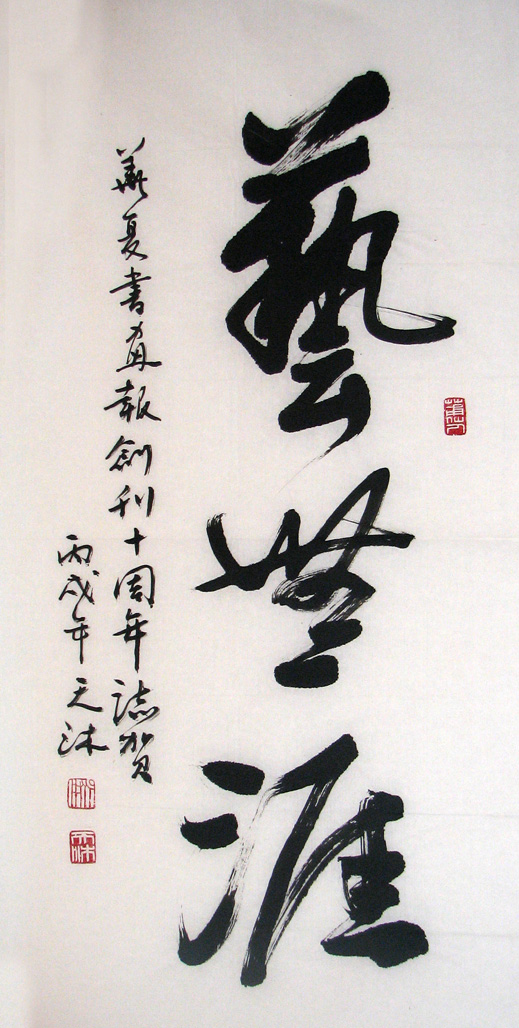 藝無涯
華夏書畫報創刊十周年誌賀
丙戌年天沐